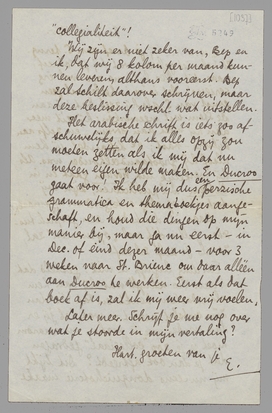 "collegialiteit"!
Wij zijn er niet zeker van, Bep en
ik, dat wij 8 kolom per maand kun-
nen leveren, althans vooreerst. Bep
zal schilt daarover schrijven, maar
deze beslissing wacht wat uitstellen.
Het arabische schrift is iets zoo af-
schuwelijks, dat ik alles op zij zou
moeten zetten als ik mij dat nu
meteen eigen wilde maken. En Ducroo
gaat voor! Ik heb mij dus een perzische
grammatica en themaboekjes aange-
schaft, en houd die dingen op mijn
manier bij, maar ga nu eerst – in
Dec. of eind dezer maand – voor 3
weken naar St. Brieuc om daar alléén
aan Ducroo te werken. Eerst als dat
boek af is, zal ik mij weer vrij voelen.
Later meer. Schrijf je me nog over
wat je stoorde in mijn vertaling?
Hart. groeten van je
E.